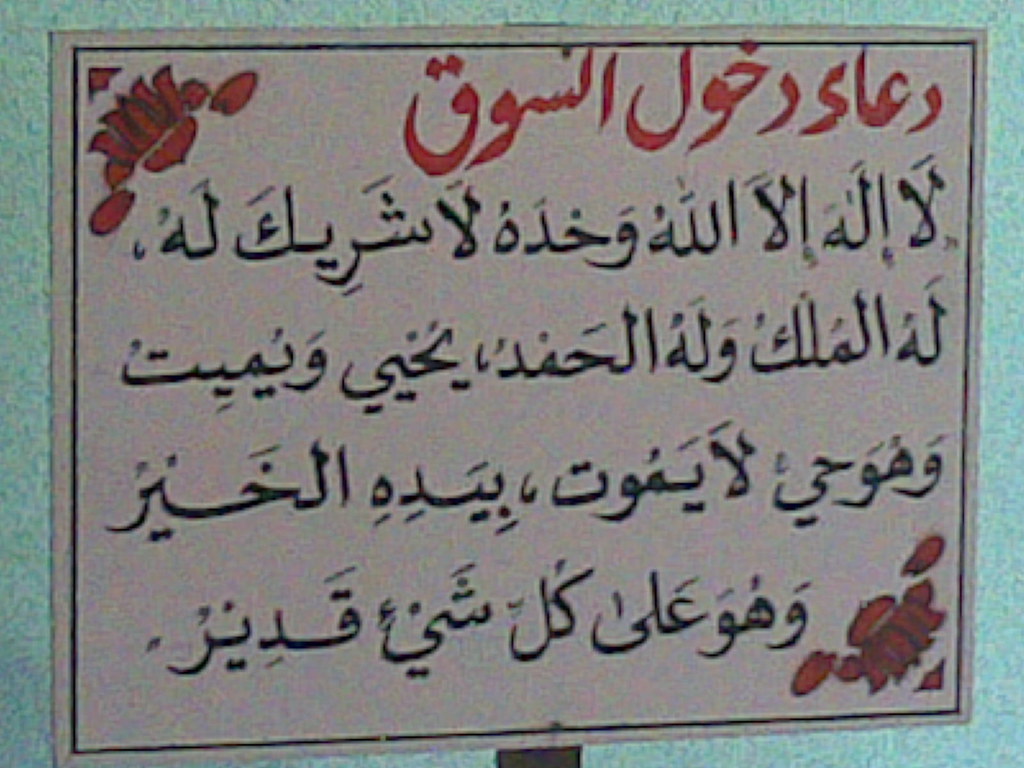 دعاء دخول السوق
لَا إِلَٰهَ إِلاَّ اللَّهُ وَحْدَهُ لاَ شَرِيكَ لَهُ،
لَهُ الْمُلْكُ وَلَهُ الْحَمْدُ، يُحْيِي وَيُمِيتُ
وَهُوَ حَيٌّ لاَ يَمُوت، بِيَدِهِ الْخَيْرُ
وَهُوَ عَلَىٰ كُلِّ شَيْءٍ قَدِيْرٌ.